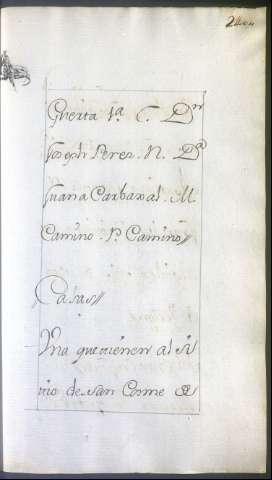 Guerta 1ª C. Dⁿ
Joseph Perez. N. Dª
Juana Carbaxal. M
Camino. P. Camino//
Casas//
Una que tienen al si
tio de san Cosme